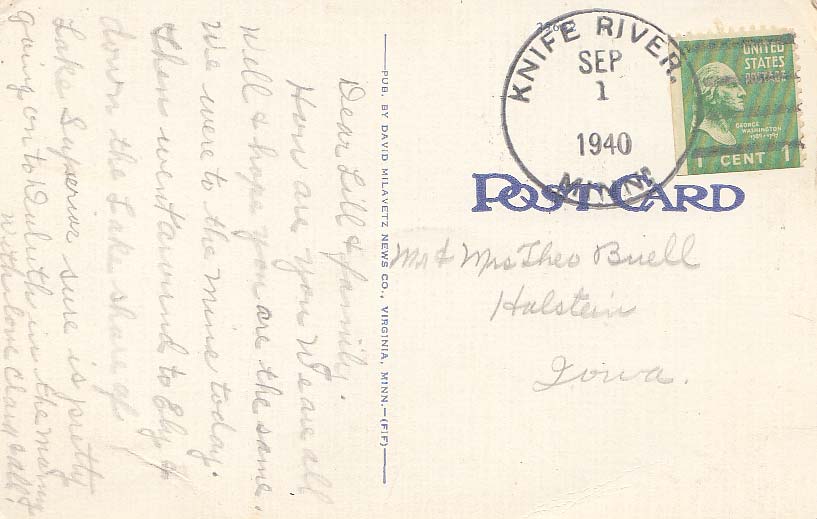 Dear Lill & family.
How are you We are all
Well & hope you are the same.
We were to the mine today.
then went around to Ely &
down the Lake share of
Lake Superior sure is pretty
going on to Duluth in the morning
with love
PUB. BY DAVID MILAVETZ NEWS CO., VIRGINIA, MINN.—(FIF)
KNIFE RIVER.
SEP
1
1940
MINN.
UNITED
STATES
POSTAGE
GEORGE
WASHINGTON
1789-1797
1 CENT 1
POST CARD
Mr & Mrs Theo Buell
Halstein
Iowa.